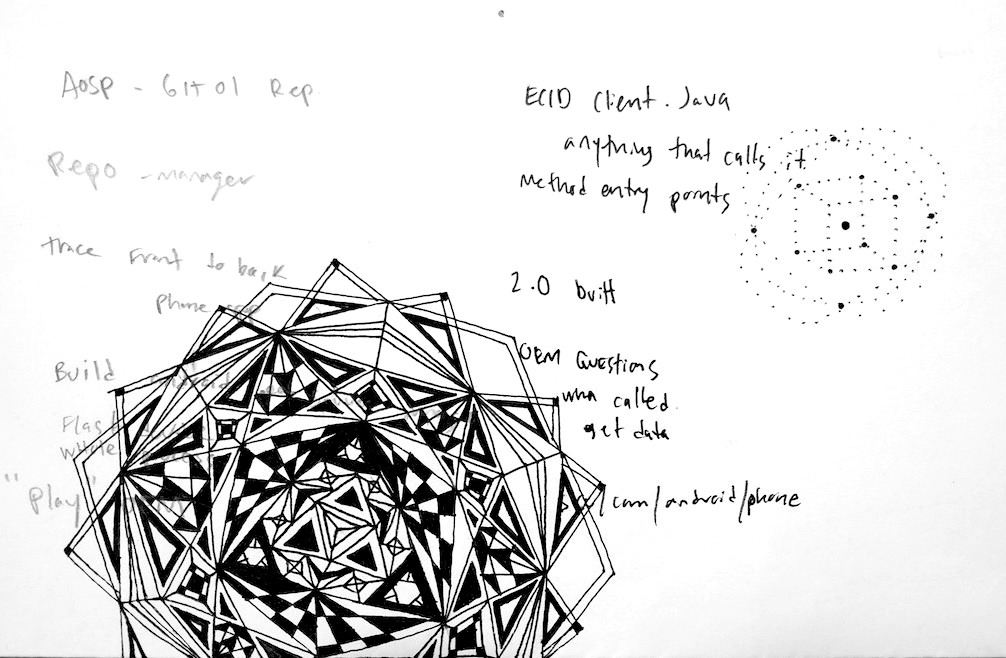 AOSP - Git 01 Rep
Repo - manager
trace front to back
phone app
Build Android
Flash
whole
"Play"
ECID Client.Java
anything that calls it
Method entry points
2.0 built
OEM Questions
who called
get data
/com/android/phone